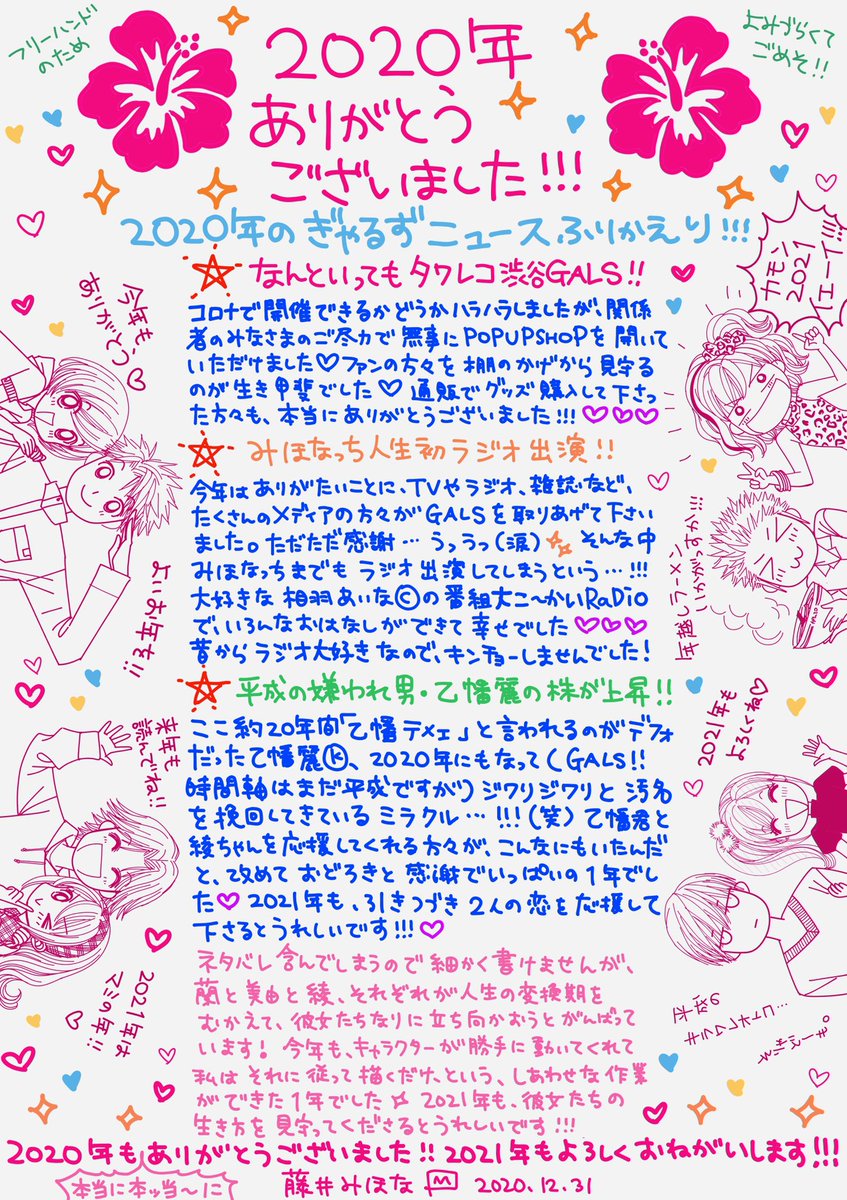 フリーハンド
のため
よみづらくて
ごめそ!!
2020年
ありがとう
ございました!!!
2020年のぎゃるずニュースふりかえり!!!
なんといってもタワレコ渋谷GALS!!
コロナで開催できるかどうかハラハラしましたが、関係
者のみなさまのご尽力で無事にPOPUPSHOPを開いて
いただけました♡ファンの方々を棚のかげから見守る
のが生き甲斐でした♡通販でグッズ購入して下さっ
た方々も、本当にありがとうございました!!!♡♡♡
みほなっち人生初ラジオ出演!!
今年はありがたいことに、TVやラジオ、雑誌など、
たくさんのメディアの方々がGALSを取りあげて下さい
ました。ただただ感謝…うっうっ(涙) そんな中
みほなっちまでもラジオ出演してしまうという…!!!
大好きな相羽あいな©の番組大こ〜かいRaDio
で、いろんなおはなしができて幸せでした♡♡♡
昔からラジオ大好きなので、キンチョーしませんでした!
平成の嫌われ男・乙幡麗の株が上昇!!
ここ約20年間「乙幡テメェ」と言われるのがデフォ
だった乙幡麗ⓚ、2020年にもなって(GALS!!
時間軸はまだ平成ですが)ジワリジワリと汚名
を挽回してきているミラクル…!!!(笑)乙幡君と
綾ちゃんを応援してくれる方々が、こんなにもいたんだ
と、改めておどろきと感謝でいっぱいの1年でし
た♡2021年も、引きつづき2人の恋を応援して
下さるとうれしいです!!!♡
ネタバレ含んでしまうので細かく書けませんが、
蘭と美由と綾、それぞれが人生の変換期を
むかえて、彼女たちなりに立ち向かおうとがんばって
います!今年も、キャラクターが勝手に動いてくれて
私はそれに従って描くだけ、という、しあわせな作業
ができた1年でした☆2021年も、彼女たちの
生き方を見守ってくださるとうれしいです!!!
今年も、
ありがとう♡
よいお年を!!
来年も
読んでね!!
2021年は
マシな年!!
カモン
2021
イェーイ!!
年越しラーメン
いかがっすか!!!
2021年も
よろしくね♡
2020年もありがとうございました!!2021年もよろしくおねがいします!!!
本当に本ッ当〜に
藤井みほな 2020.12.31